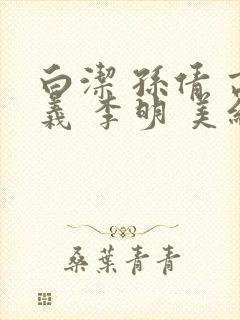 白潔 孫倩
義 李明 美
桑葉青青